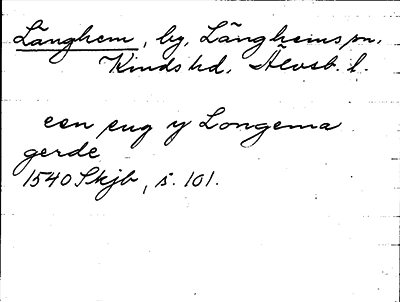 Länghem, by, Länghems sn.
Kinds hd. Älvsb. l.
een eng y Longema
gerde
1540 Skjb, s. 101.